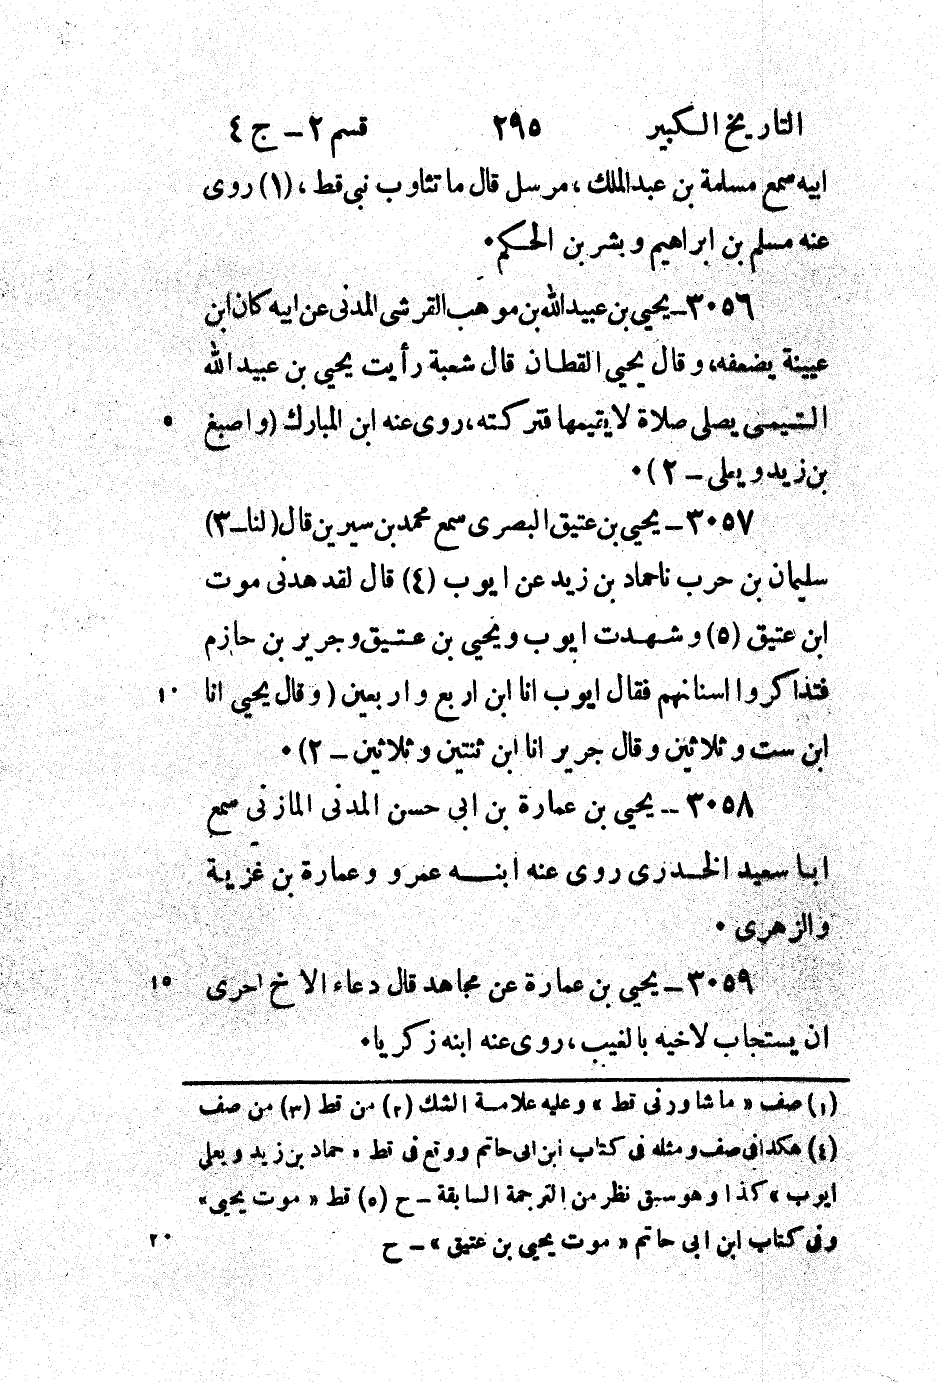 التاريخ الكبير ٢٩٥ قسم ٢ – ج ٤
ابيه سمع مسلمة بن عبدالملك، مرسل قال ما تثاوب نبي قط، (١) روى
عنه مسلم بن ابراهيم وبشر بن الحكم.
٣٠٥٦ – يحيى بن عبيدالله بن موهب القرشى المدنى عن ابيه كان ابن
عيينة يضعفه، وقال يحيى القطان قال شعبة رأيت يحيى بن عبيد الله
التيمى يصلى صلاة لايقيمها فتركته، روى عنه ابن المبارك (واصبغ ٥
بن زيد ويعلى – ٢).
٣٠٥٧ – يحيى بن عتيق البصرى سمع محمد بن سيرين قال (لنا – ٣)
سليمان بن حرب ناحماد بن زيد عن ايوب (٤) قال لقد هدنى موت
ابن عتيق (٥) وشهدت ايوب ويحيى بن عتيق وجرير بن حازم
فتذاكروا اسنانهم فقال ايوب انا ابن اربع واربعين (وقال يحيى انا ١٠
ابن ست وثلاثين وقال جرير انا ابن ثنتين وثلاثين – ٢).
٣٠٥٨ – يحيى بن عمارة بن ابى حسن المدنى المازنى سمع
ابا سعيد الخدرى روى عنه ابنه عمرو وعمارة بن غزية
والزهرى.
٣٠٥٩ – يحيى بن عمارة عن مجاهد قال دعاء الاخ احرى ١٥
ان يستجاب لاخيه بالغيب، روى عنه ابنه زكريا.
(١) صف « ما شاورنى قط » وعليه علامة الشك (٢) من قط (٣) من صف
(٤) هكذا فى صف ومثله فى كتاب ابن ابى حاتم ووقع فى قط « حماد بن زيد ويعلى
ايوب » كذا وهو سبق نظر من الترجمة السابقة – ح (٥) قط « موت يحيى »
وفى كتاب ابن ابى حاتم « موت يحيى بن عتيق » – ح ٢٠